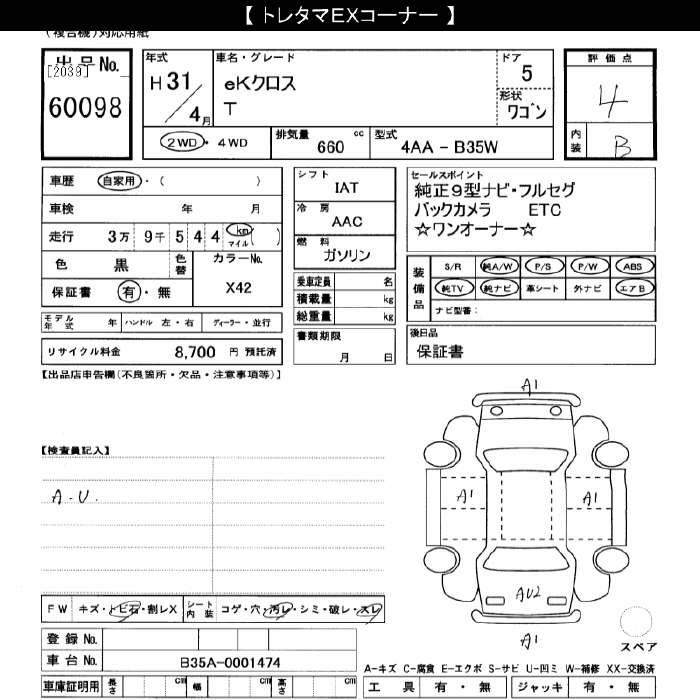 【 トレタマEXコーナー 】
(複合機)対応用紙
出品No.
[2039]
60098
年式
H31/4月
車名・グレード
eKクロス
T
ドア
5
形状
ワゴン
2WD・4WD
排気量 660 cc
型式 4AA - B35W
評価点
4
内装 B
車歴 自家用・( )
車検 年 月
走行 3万 9千 5 4 4 km マイル ( )
色 黒 色替 カラーNo.
X42
保証書 有・無
モデル年式 年 ハンドル 左・右 ディーラー・並行
リサイクル料金 8,700 円 預託済
シフト
IAT
冷房
AAC
燃料
ガソリン
乗車定員 名
積載量 kg
総重量 kg
書類期限
月 日
セールスポイント
純正9型ナビ・フルセグ
バックカメラ ETC
☆ワンオーナー☆
装備品
S/R 純A/W P/S P/W ABS
純TV 純ナビ 革シート 外ナビ エアB
ナビ型番:
後日品
保証書
【出品店申告欄(不良箇所・欠品・注意事項等)】
【検査員記入】
A・U.
A1
A1 A1
AU2
A1
スペア
FW キズ・トビ石・割レX シート内装 コゲ・穴・汚レ・シミ・破レ・スレ
登録No.
車台No. B35A-0001474
車庫証明用 長さ cm 幅 cm 高さ cm
A-キズ C-腐食 E-エクボ S-サビ U-凹ミ W-補修 XX-交換済
工具 有・無 ジャッキ 有・無